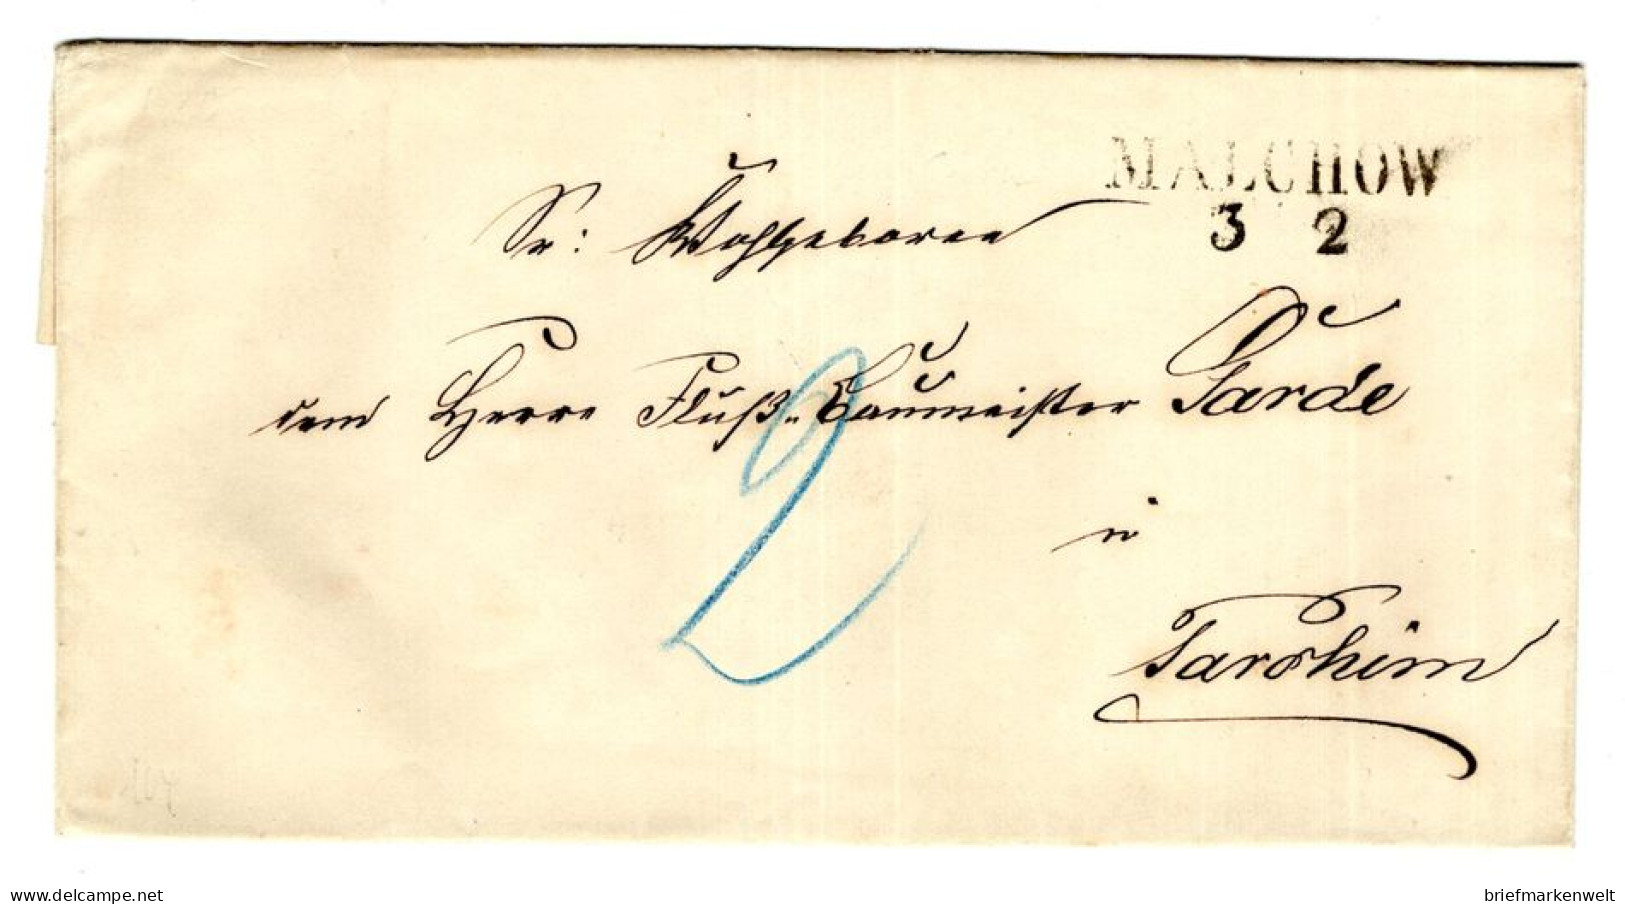 MALCHOW
3 2
Sr: Wohlgeboren
dem Herrn Fluß-Baumeister Garde
in
Parchim
2
delcampe.net
briefmarkenwelt